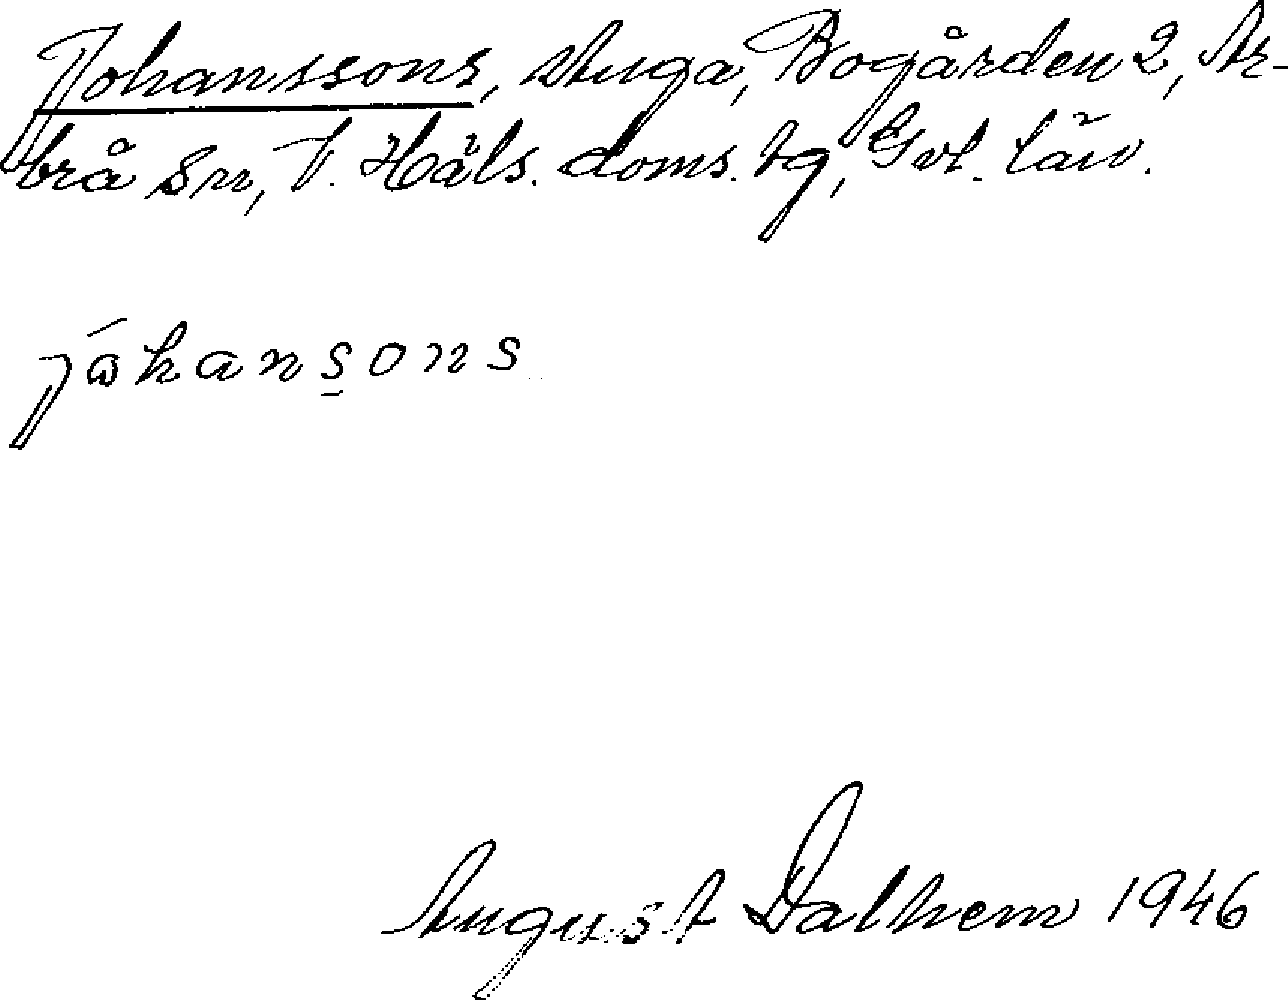 Johanssons, stuga, Bogården 2, Ar-
brå sn, V. Häls. doms. tg, Gvl. län.
jåhansons
August Dalhem 1946